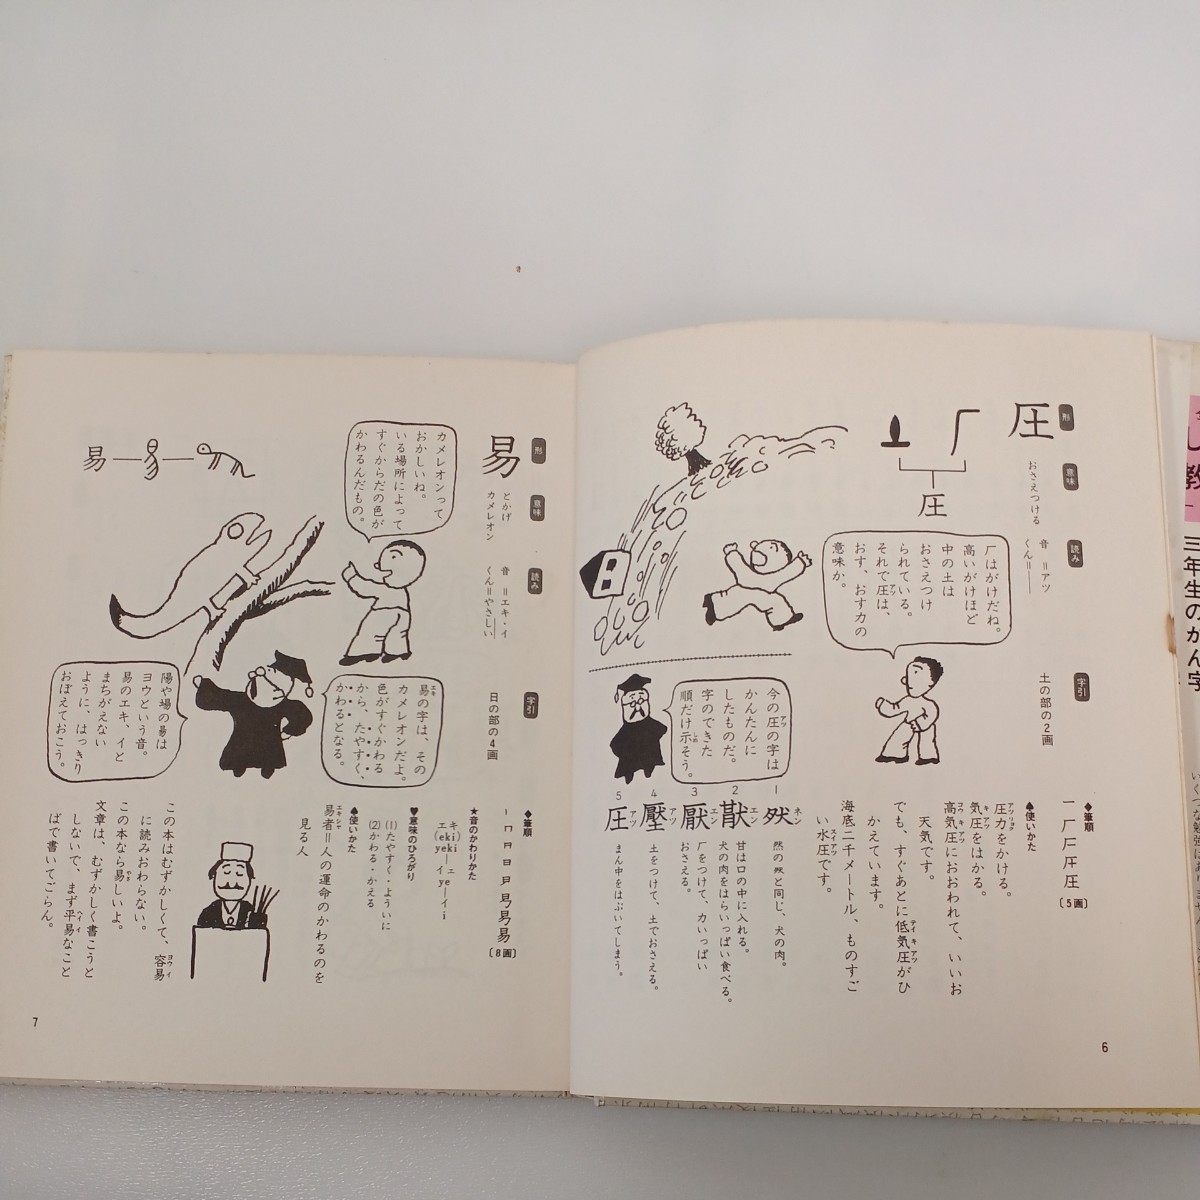 形
圧
圧
意味
おさえつける
読み
音=アツ
くん=――
字引
土の部の2画
厂はがけだね。
高いがけほど
中の土は
おさえつけ
られている。
それで圧は、
おす、おす力の
意味か。
今の圧の字は
かんたんに
したものだ。
字のできた
順だけ示そう。
◆筆順
一厂圧圧圧
〔5画〕
♠使いかた
圧力をかける。
気圧をはかる。
高気圧におおわれて、いいお
天気です。
でも、すぐあとに低気圧がひ
かえています。
海底二千メートル、ものすご
い水圧です。
1
肰ネン
然の肰と同じ、犬の肉。
2
猒エン
甘は口の中に入れる。
犬の肉をはらいっぱい食べる。
3
厭エン
厂をつけて、力いっぱい
おさえる。
4
壓アツ
土をつけて、土でおさえる。
5
圧アツ
まん中をはぶいてしまう。
6
三年生のかん字
形
易
意味
とかげ
カメレオン
読み
音=エキ・イ
くん=やさしい
字引
日の部の4画
カメレオンって
おかしいね。
いる場所によって
すぐからだの色が
かわるんだもの。
易
易の字は、その
カメレオンだよ。
色がすぐかわる
から、たやすく、
かわるとなる。
陽や場の昜は
ヨウという音。
易のエキ、イと
まちがえない
ように、はっきり
おぼえておこう。
◆筆順
〔8画〕
★音のかわりかた
キ
エ(eki)
eyek
イ
エ
ye
イ
i
♥意味のひろがり
(1)たやすく・ように
(2)かわる・かえる
♠使いかた
易者=人の運命のかわるのを
見る人
この本はむずかしくて、容易
に読みおわらない。
この本なら易しいよ。
文章は、むずかしく書こうと
しないで、まず平易なこと
ばで書いてごらん。
7